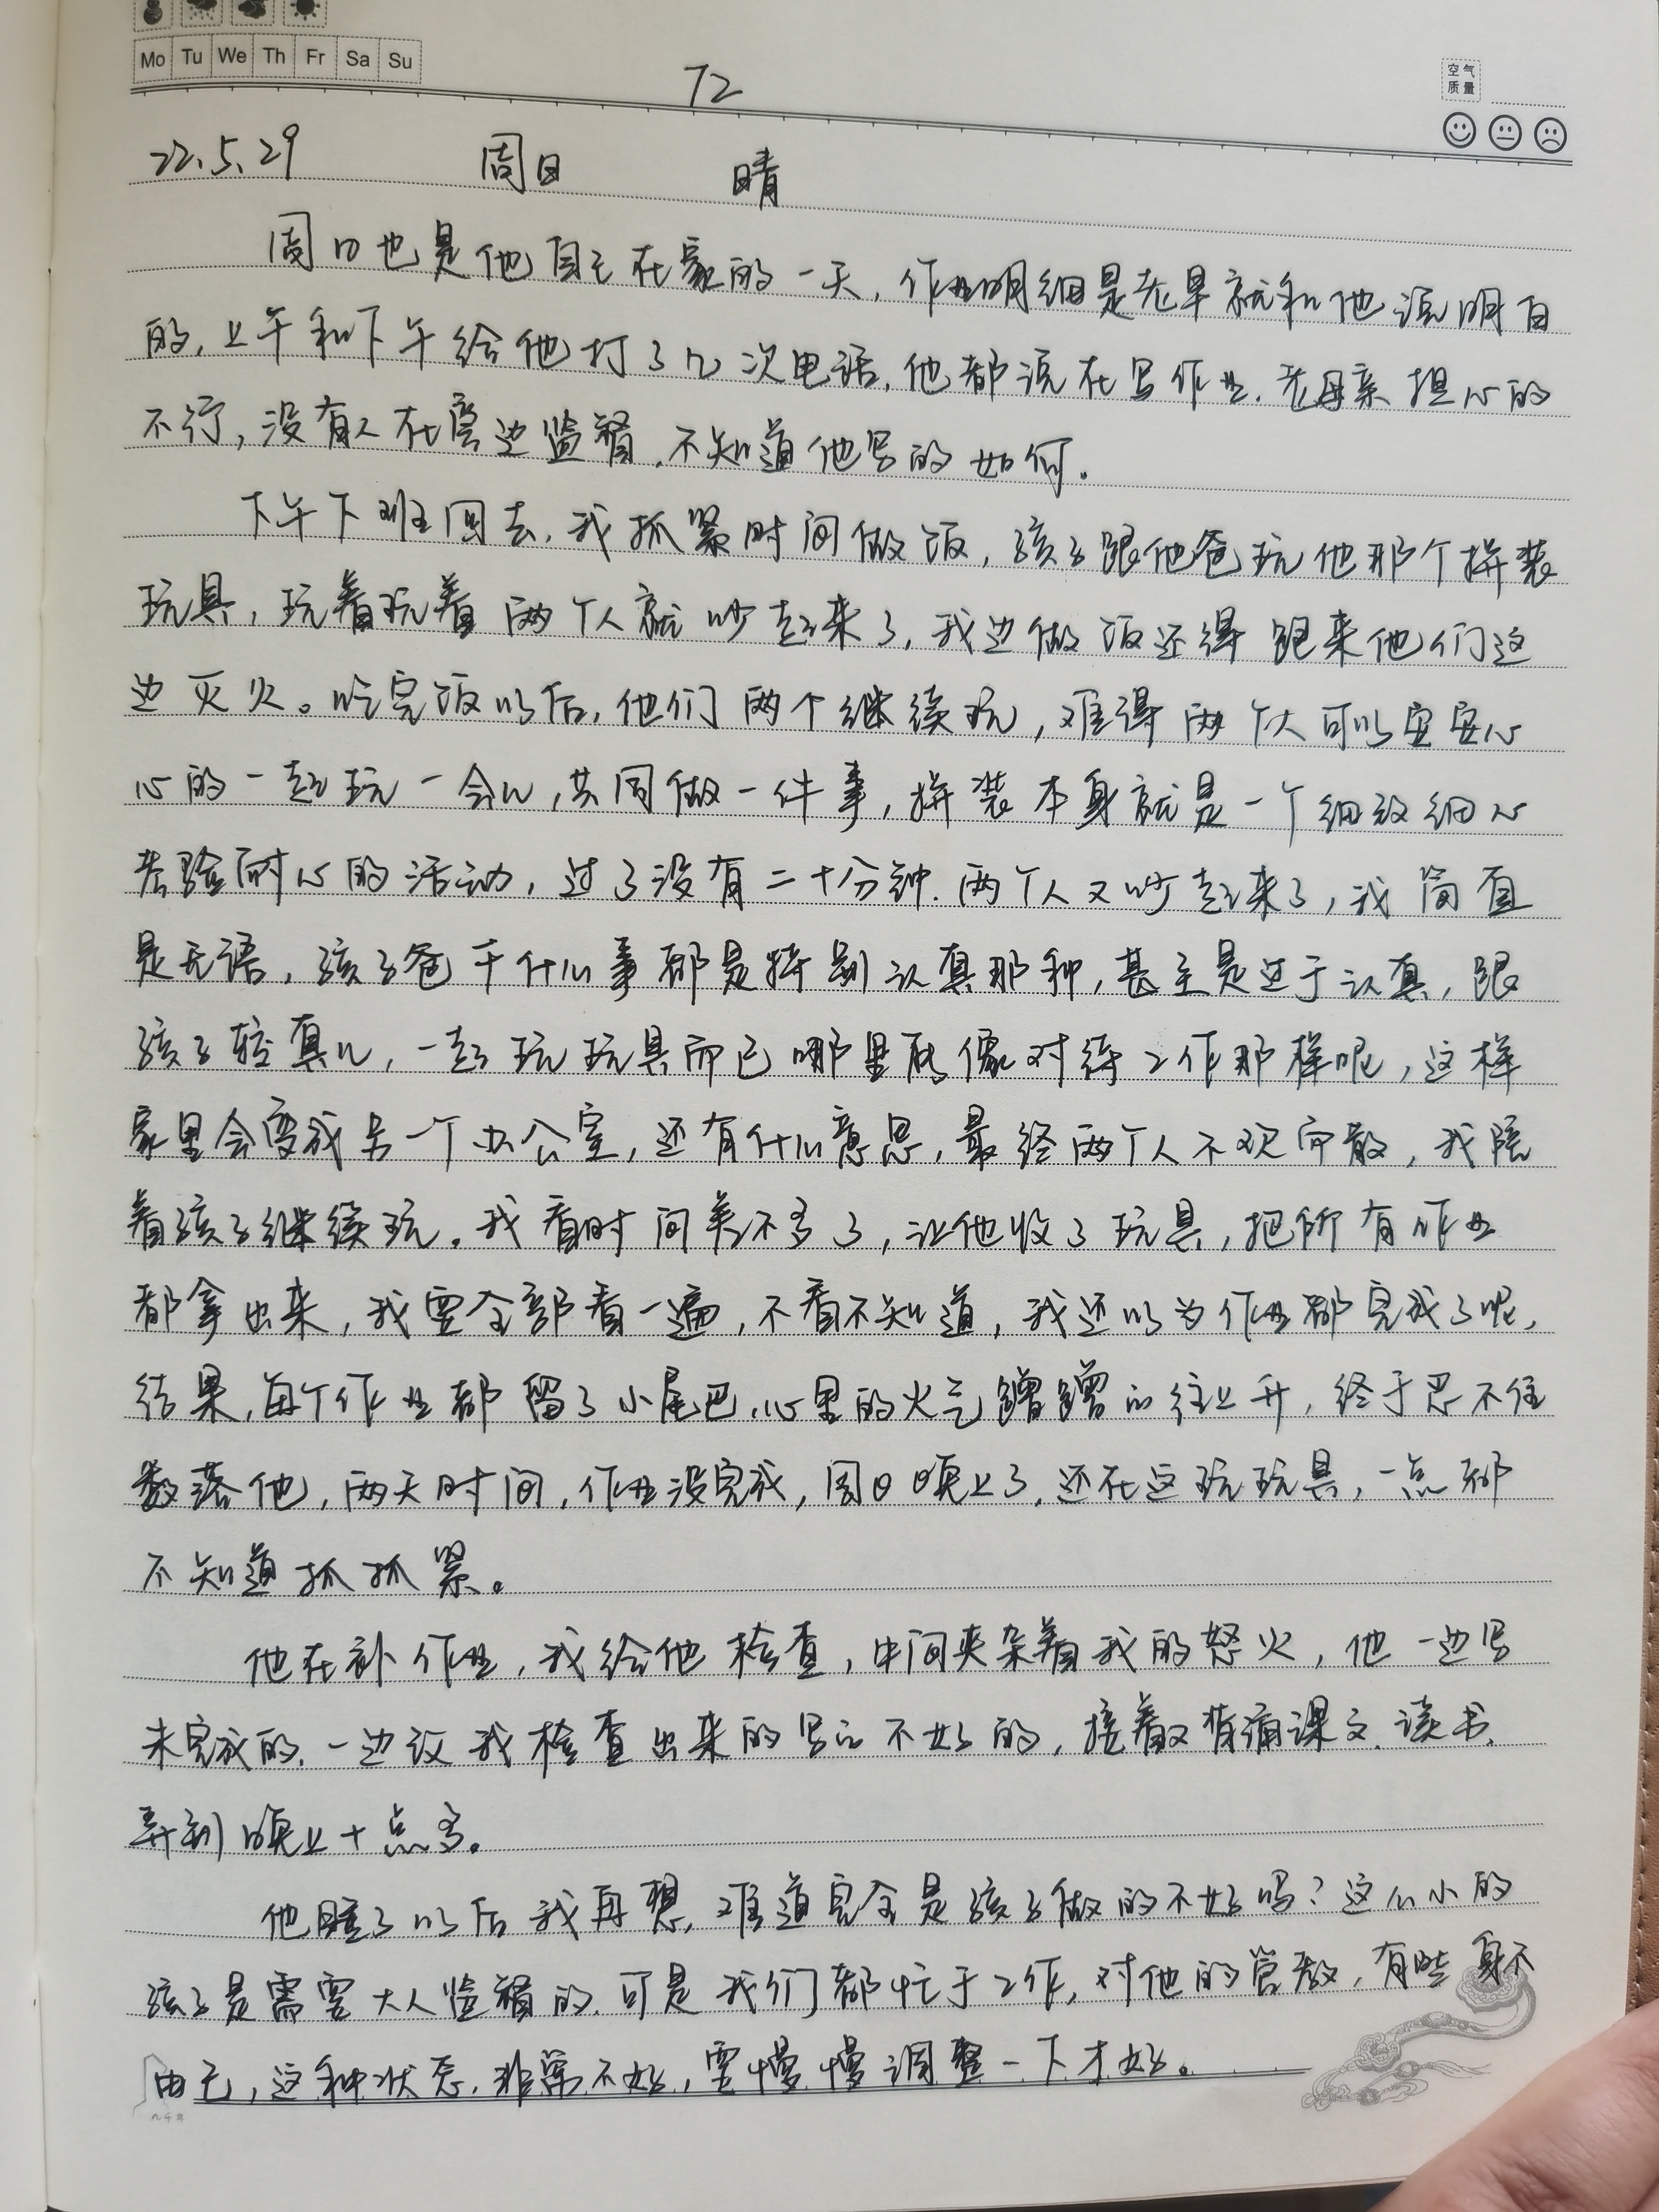 Mo Tu We Th Fr Sa Su
72
空气
质量
22.5.29 周日 晴
周日也是他自己在家的一天，作业明细是老早就和他说明白
的，上午和下午给他打了几次电话，他都说在写作业，老母亲担心的
不行，没有人在旁边监督，不知道他写的如何。
下午下班回去，我抓紧时间做饭，孩子跟他爸玩他那个拼装
玩具，玩着玩着两个人就吵起来了，我边做饭还得跑来他们这
边灭火。吃完饭以后，他们两个继续玩，难得两个人可以安安心
心的一起玩一会儿，共同做一件事，拼装本身就是一个细致细心
考验耐心的活动，过了没有二十分钟，两个人又吵起来了，我简直
是无语，孩子爸干什么事都是特别认真那种，甚至是过于认真，跟
孩子较真儿，一起玩玩具而已哪里能像对待工作那样呢，这样
家里会变成另一个办公室，还有什么意思，最终两个人不欢而散，我陪
着孩子继续玩。我看时间差不多了，让他收了玩具，把所有作业
都拿出来，我要全部看一遍，不看不知道，我还以为作业都完成了呢，
结果，每个作业都留了小尾巴，心里的火气蹭蹭的往上升，终于忍不住
数落他，两天时间，作业没完成，周日晚上了，还在这玩玩具，一点都
不知道抓抓紧。
他在补作业，我给他检查，中间夹杂着我的怒火，他一边写
未完成的，一边改我检查出来的写的不好的，接着又背诵课文、读书，
弄到晚上十点多。
他睡了以后我再想，难道完全是孩子做的不好吗？这么小的
孩子是需要大人监督的，可是我们都忙于工作，对他的管教，有些身不
由己，这种状态，非常不好，要慢慢调整一下才好。